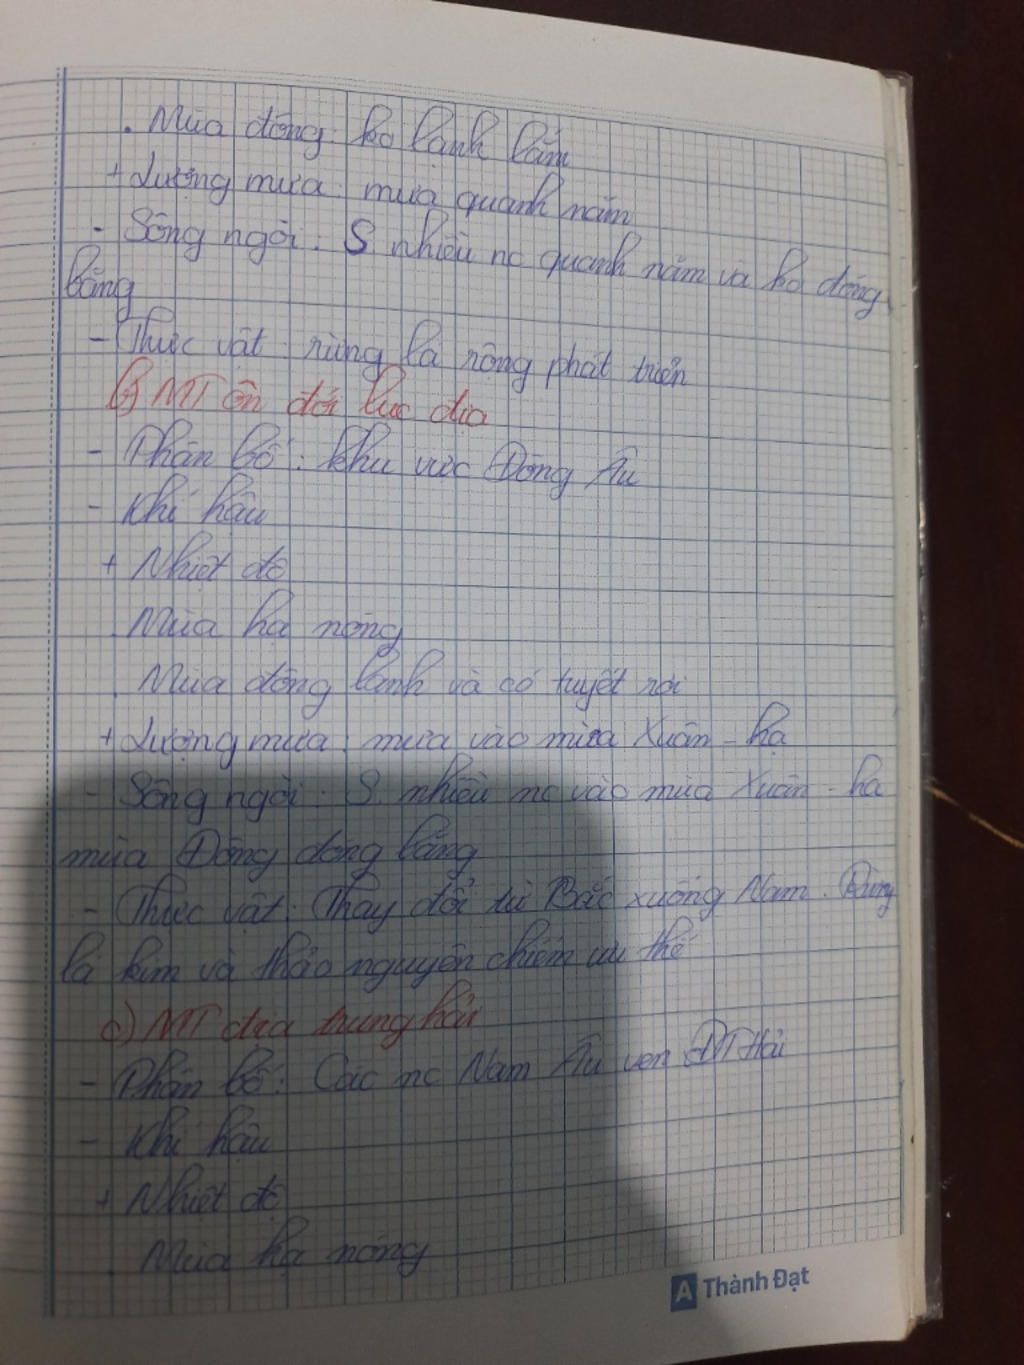 . Mùa đông: ko lạnh lắm
+ Lượng mưa: mưa quanh năm
- Sông ngòi: S nhiều nc quanh năm và ko đóng
băng
- Thực vật: rừng lá rộng phát triển
b) MT ôn đới lục địa
- Phân bố: khu vực Đông Âu
- Khí hậu
+ Nhiệt độ
. Mùa hạ nóng
. Mùa đông lạnh và có tuyết rơi
+ Lượng mưa: mưa vào mùa Xuân - hạ
- Sông ngòi: S. nhiều nc vào mùa Xuân - hạ
mùa Đông đóng băng
- Thực vật: Thay đổi từ Bắc xuống Nam. Rừng
lá kim và thảo nguyên chiếm ưu thế
c) MT địa trung hải
- Phân bố: Các nc Nam Âu ven ĐT Hải
- Khí hậu
+ Nhiệt độ
. Mùa hạ nóng
A Thành Đạt